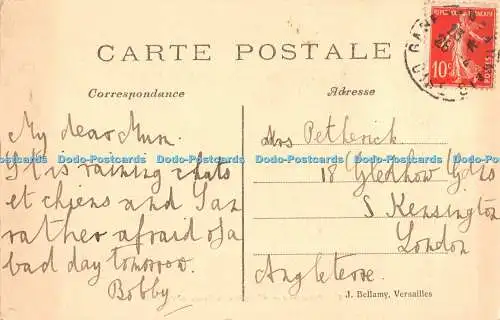 CARTE POSTALE
Correspondance
My dear Mum.
It is raining chats
et chiens and I am
rather afraid of a
bad day tomorrow.
Bobby
Adresse
Mrs Petherick
18 Gledhow Gdns
S Kensington
London
Angleterre.
J. Bellamy, Versailles
10c
POSTES
Dodo-Postcards Dodo-Postcards Dodo-Postcards Dodo-Postcards